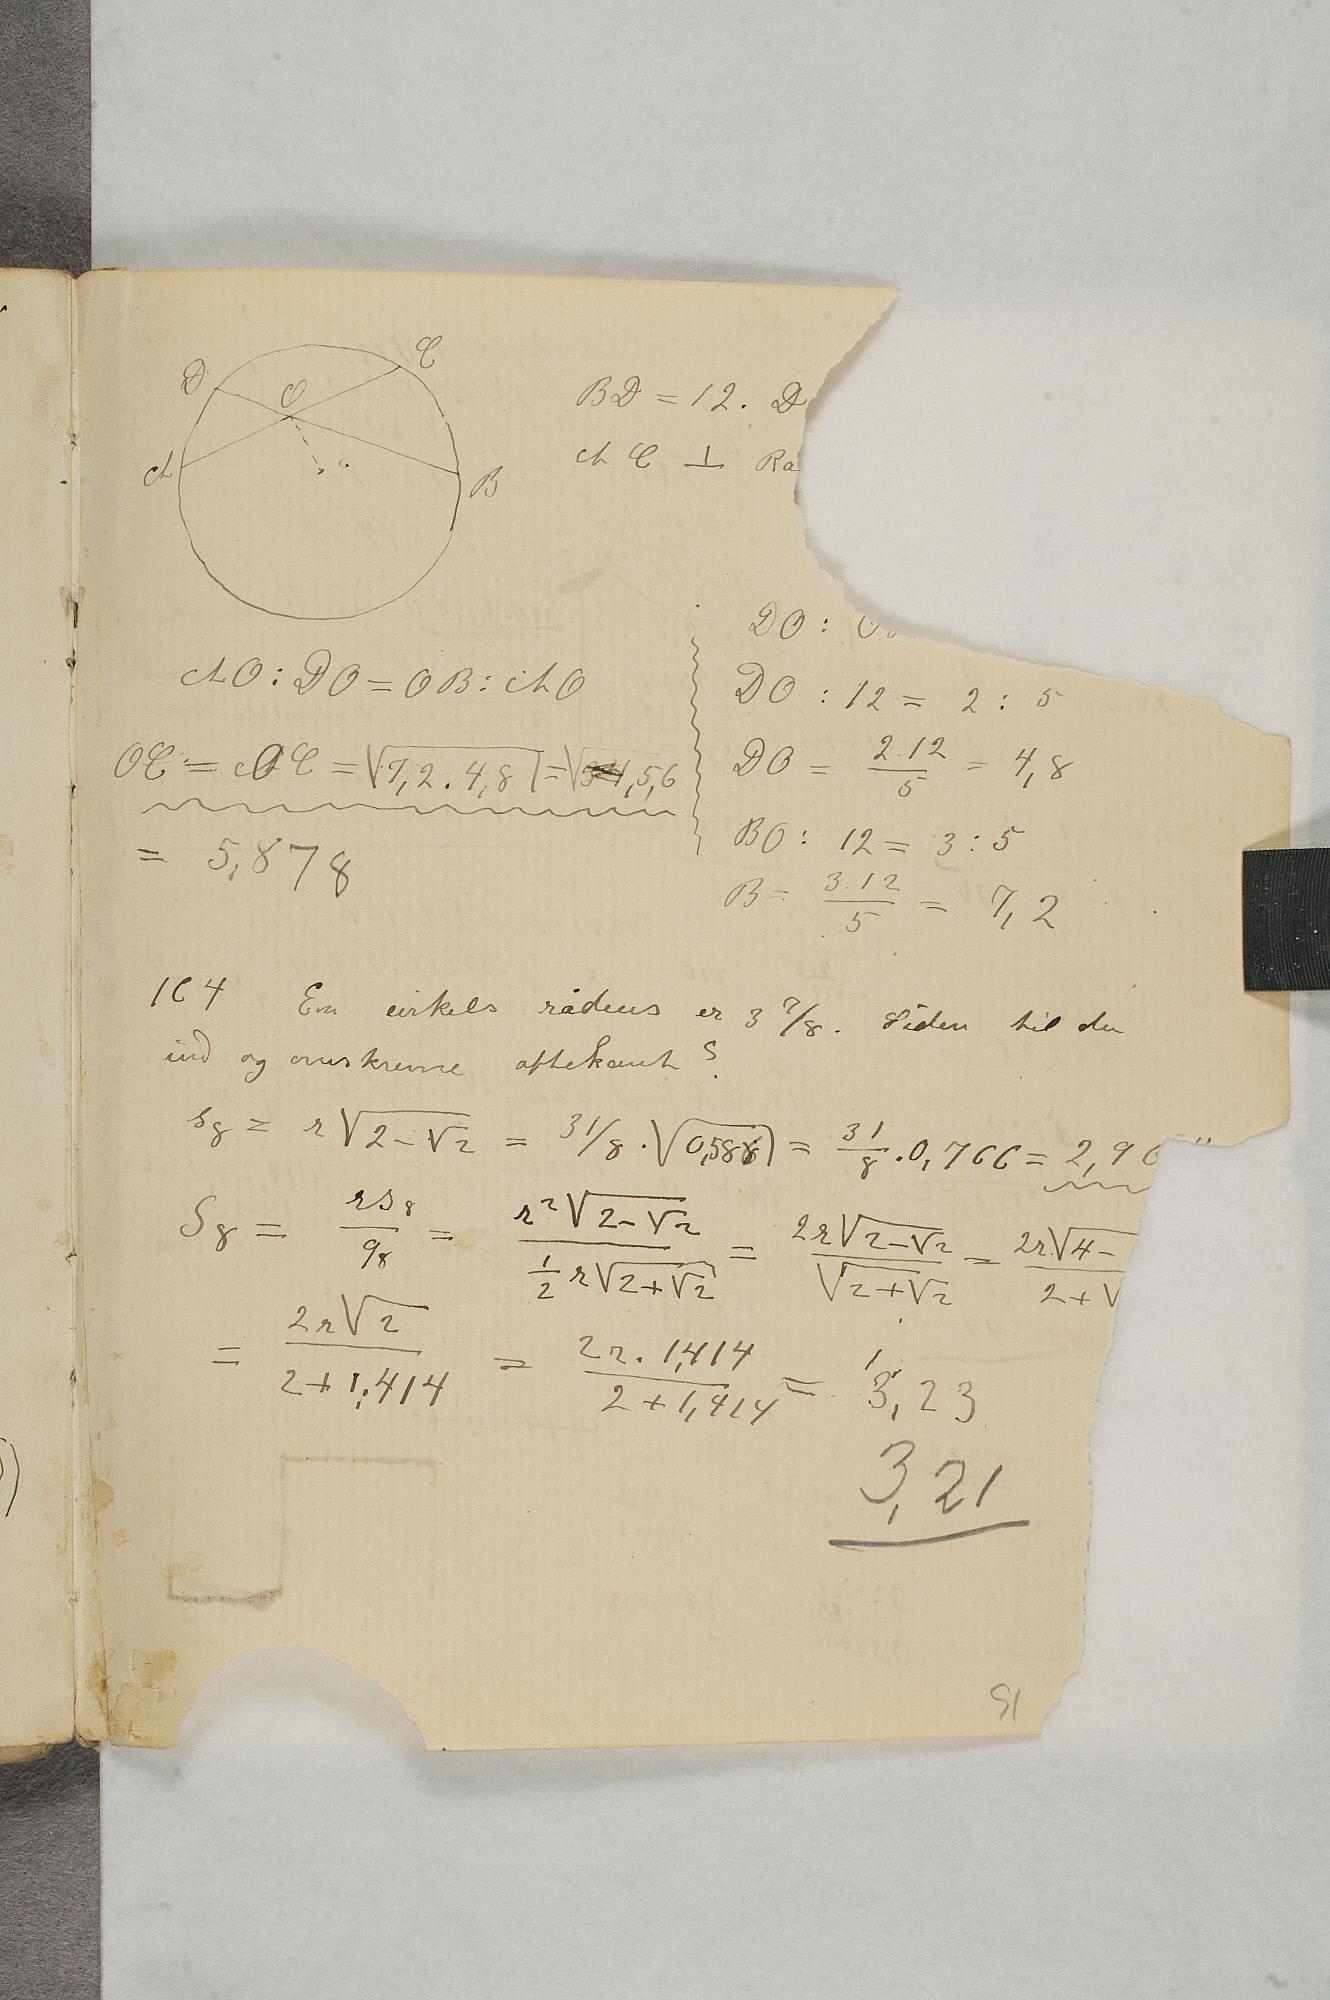 D C O A B
BD = 12. D
AC ⊥ Ra
AO : DO = OB : AO
OC = AO = √7,2 . 4,8 = √34,56
= 5,878
DO : O
DO : 12 = 2 : 5
DO = 2.12/5 = 4,8
BO : 12 = 3 : 5
B = 3.12/5 = 7,2
164 En cirkels radius er 3 7/8. Siden til den
ind og omskrevne ottekant?
s8 = r√2-√2 = 31/8 . √0,588 = 31/8 . 0,766 = 2,96"
S8 = rs8/q8 = r²√2-√2 / ½r√2+√2 = 2r√2-√2 / √2+√2 = 2r√4- / 2+√
= 2r√2 / 2+1,414 = 2r. 1,414 / 2+1,414 = 3,23
3,21
51